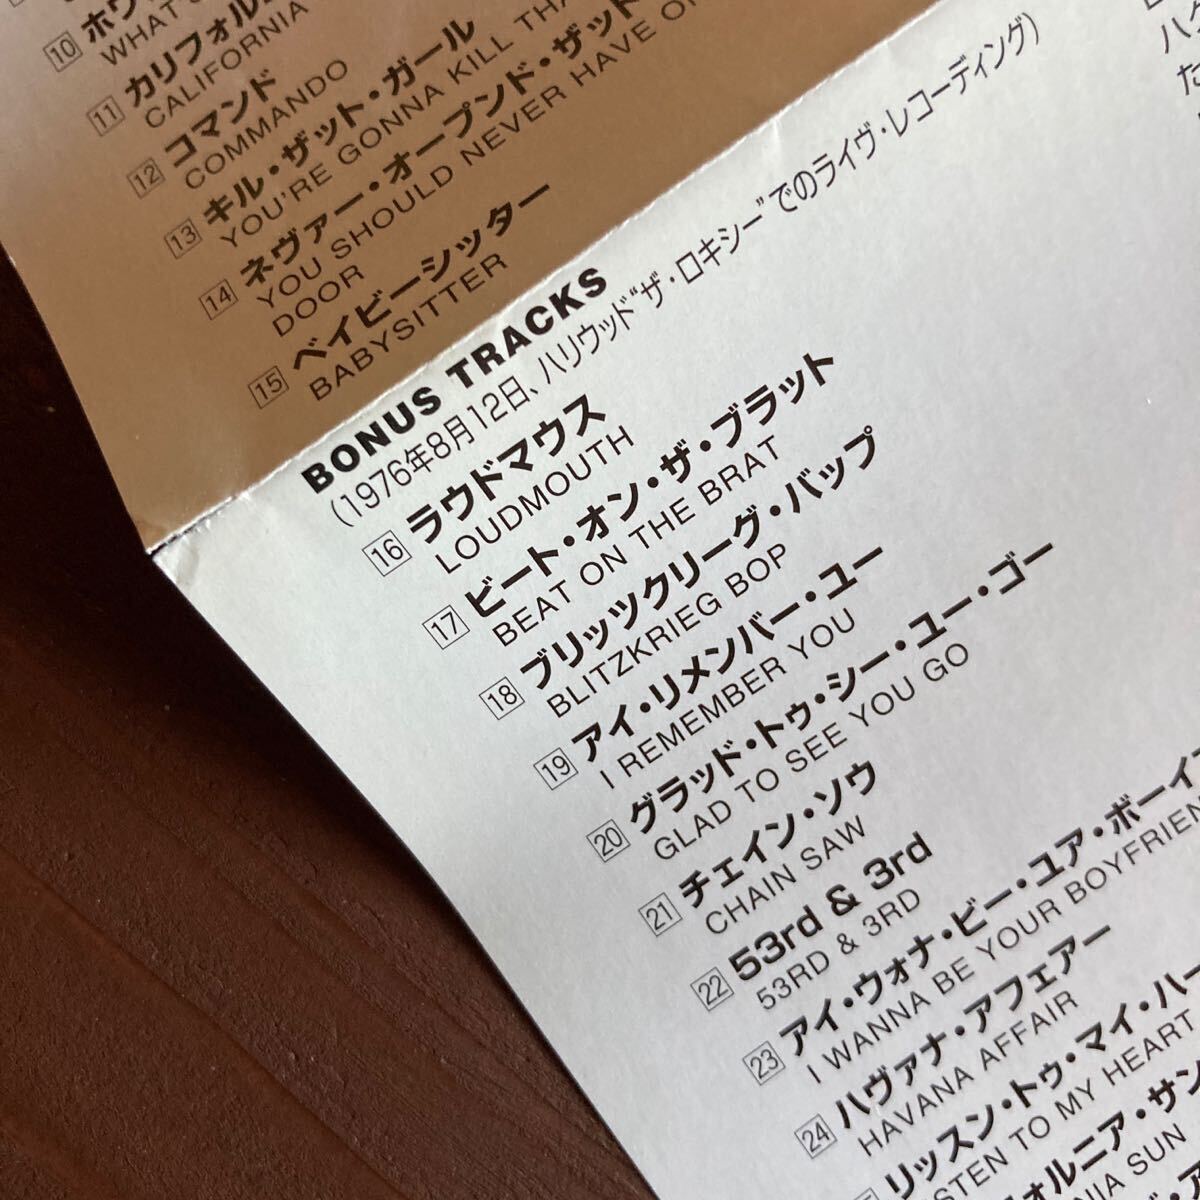 10 ホワ
WHAT'S
11 カリフォル
CALIFORNIA
12 コマンド
COMMANDO
13 キル・ザット・ガール
YOU'RE GONNA KILL THA
14 ネヴァー・オープンド・ザット
YOU SHOULD NEVER HAVE O
DOOR
15 ベイビーシッター
BABYSITTER
BONUS TRACKS
(1976年8月12日、ハリウッド“ザ・ロキシー”でのライヴ・レコーディング)
16 ラウドマウス
LOUDMOUTH
17 ビート・オン・ザ・ブラット
BEAT ON THE BRAT
18 ブリッツクリーグ・バップ
BLITZKRIEG BOP
19 アイ・リメンバー・ユー
I REMEMBER YOU
20 グラッド・トゥ・シー・ユー・ゴー
GLAD TO SEE YOU GO
21 チェイン・ソウ
CHAIN SAW
22 53rd & 3rd
53RD & 3RD
23 アイ・ウォナ・ビー・ユア・ボーイフ
I WANNA BE YOUR BOYFRIEN
24 ハヴァナ・アフェアー
HAVANA AFFAIR
リッスン・トゥ・マイ・ハー
ISTEN TO MY HEART
ォルニア・サン
IA SUN